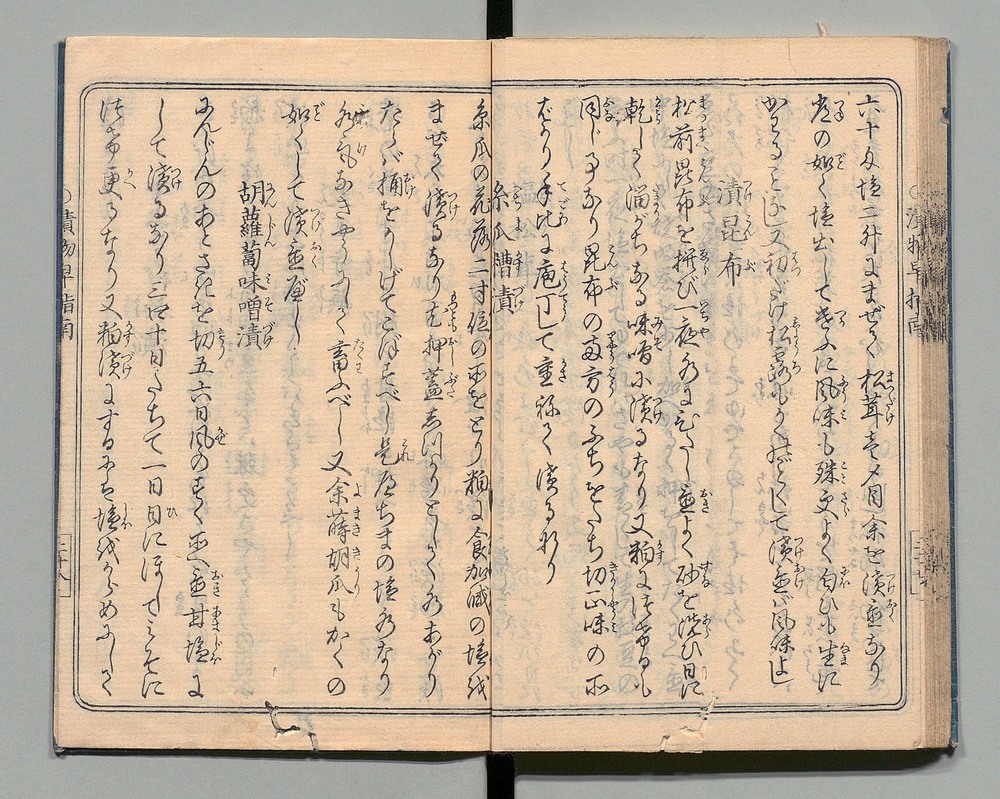 六十匁塩二升にまぜて松茸壱〆目余を漬置なり
煮る如く塩出してきよに風味も殊更よく匂ひも生に
かはることなし又初だけ松露もかくのごとくして漬置バ風味よし
漬昆布
松前昆布を択び一夜水にひたし置よく砂を洗ひ日に
乾して溜がちなる味噌に漬るなり又粕につけるも
同じ事なり昆布の両方のふちをたち切正味の所
ばかり手比に庖丁して重ねて漬る也
糸瓜糟漬
糸瓜の花落二寸位の所をとり粕に食加減の塩を
まぜて漬るなり尤押蓋をつかりとして水あがり
たらバ桶をかしげてこぼすべし是すなはちまの塩水なり
水気なきやうにして畜ふべし又余蒔胡瓜もかくの
如くして漬置べし
胡蘿蔔味噌漬
にんじんのあとさきを切五六日風のすく所へ置甘塩に
して漬るなり三四十日たちて一日日にほしてみそに
漬かへ更るなり又粕漬にするにも塩をからめにして
漬物早指南